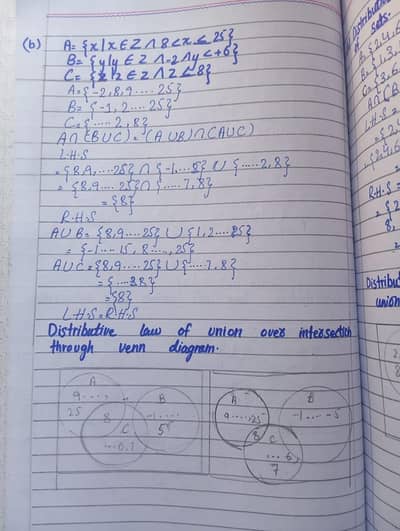 (b) A= {x|x ∈ Z ∧ 8<x≤25}
B= {y|y ∈ Z ∧ -2∧y<+6}
C= {z|z ∈ Z ∧ Z≤8}
A={-2,8,9....25}
B= {-1,2....25}
C={.....2,8}
A∩(BUC)=(AUB)∩(AUC)
L.H.S
={8,9,...25}∩{-1,...5}U{.....2,8}
= {8,9....25}∩{.....7,8}
={8}
R.H.S
AUB={8,9....25}U{1,2....25}
= {-1....15,8....,25}
AUC={8,9....25}U{....7,8}
={....8}
={8}
L.H.S=R.H.S
Distributive law of union over intersection
through venn diagram.
A
9....
25
8
B
-1....
5
C
A
9....25
B
-1....-5
8
C
...6,
7
Distributive
of sets.
A∩(B
L.H.S=
R.H.S=
Distribut
union